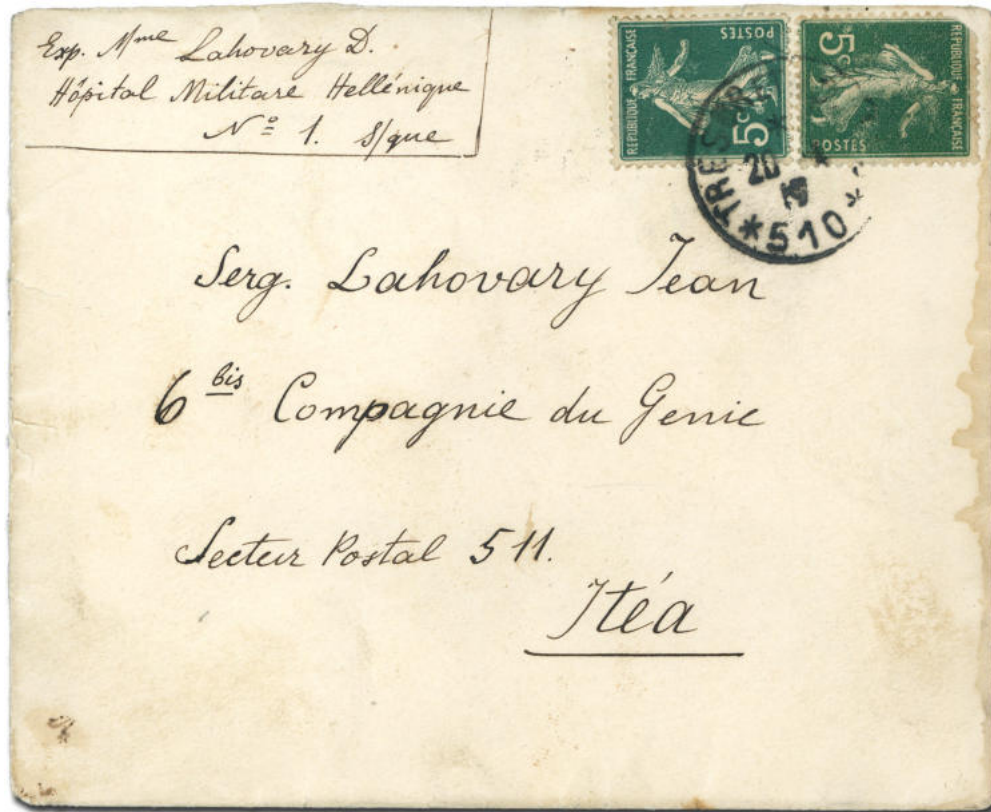 Exp. Mme Lahovary D.
Hôpital Militare Hellénique
Nº 1. S/que
REPUBLIQUE FRANÇAISE
POSTES
5c
REPUBLIQUE FRANÇAISE
POSTES
5c
TRESOR
20
*510*
Serg. Lahovary Jean
6 bis Compagnie du Genie
Secteur Postal 511.
Itéa